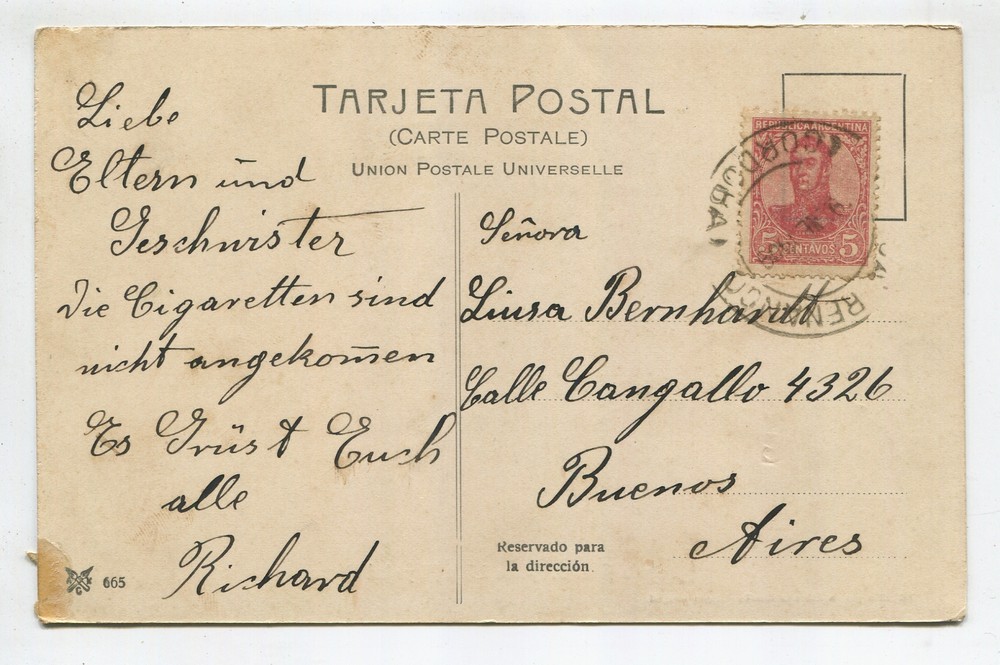 TARJETA POSTAL
(CARTE POSTALE)
UNION POSTALE UNIVERSELLE
Liebe
Eltern und
Geschwister
die Cigaretten sind
nicht angekom̄en
Es Grüst Euch
alle
Richard
665
REPUBLICA ARGENTINA
5 CENTAVOS 5
CORDOBA
Señora
Liusa Bernhardt
Calle Cangallo 4326
Buenos
Aires
Reservado para
la dirección